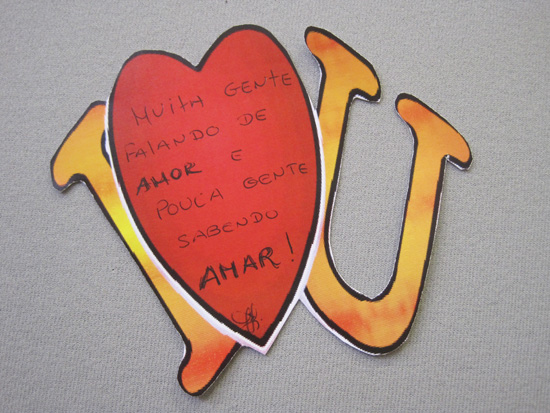 I U
MUITA GENTE
FALANDO DE
AMOR E
POUCA GENTE
SABENDO
AMAR!